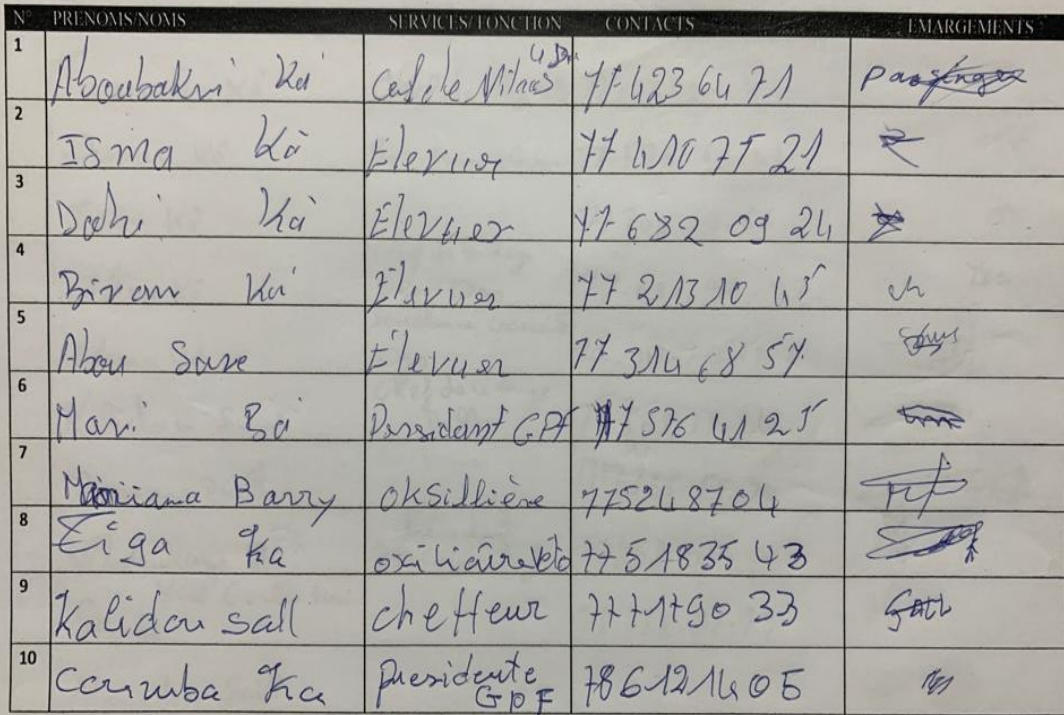 N° PRENOMS/NOMS SERVICES/FONCTION CONTACTS EMARGEMENTS
1 Aboubakri Ka 77 423 64 71
2 ISma Ka Elevuer 77 410 75 21
3 Dahi Ka Elevuer 77 682 09 24
4 Biram Ka Elevuer 77 213 10 45
5 Abou Sow Elevuer 77 314 68 57
6 Mari Ba Pressidant GPF 77 576 41 25
7 Mariama Barry oksillière 775248704
8 Ziga Ka oxiliaire veto 77 5183543
9 Kalidou Sall cheffeur 777179033
10 Coumba Ka presidente GPF 786121405